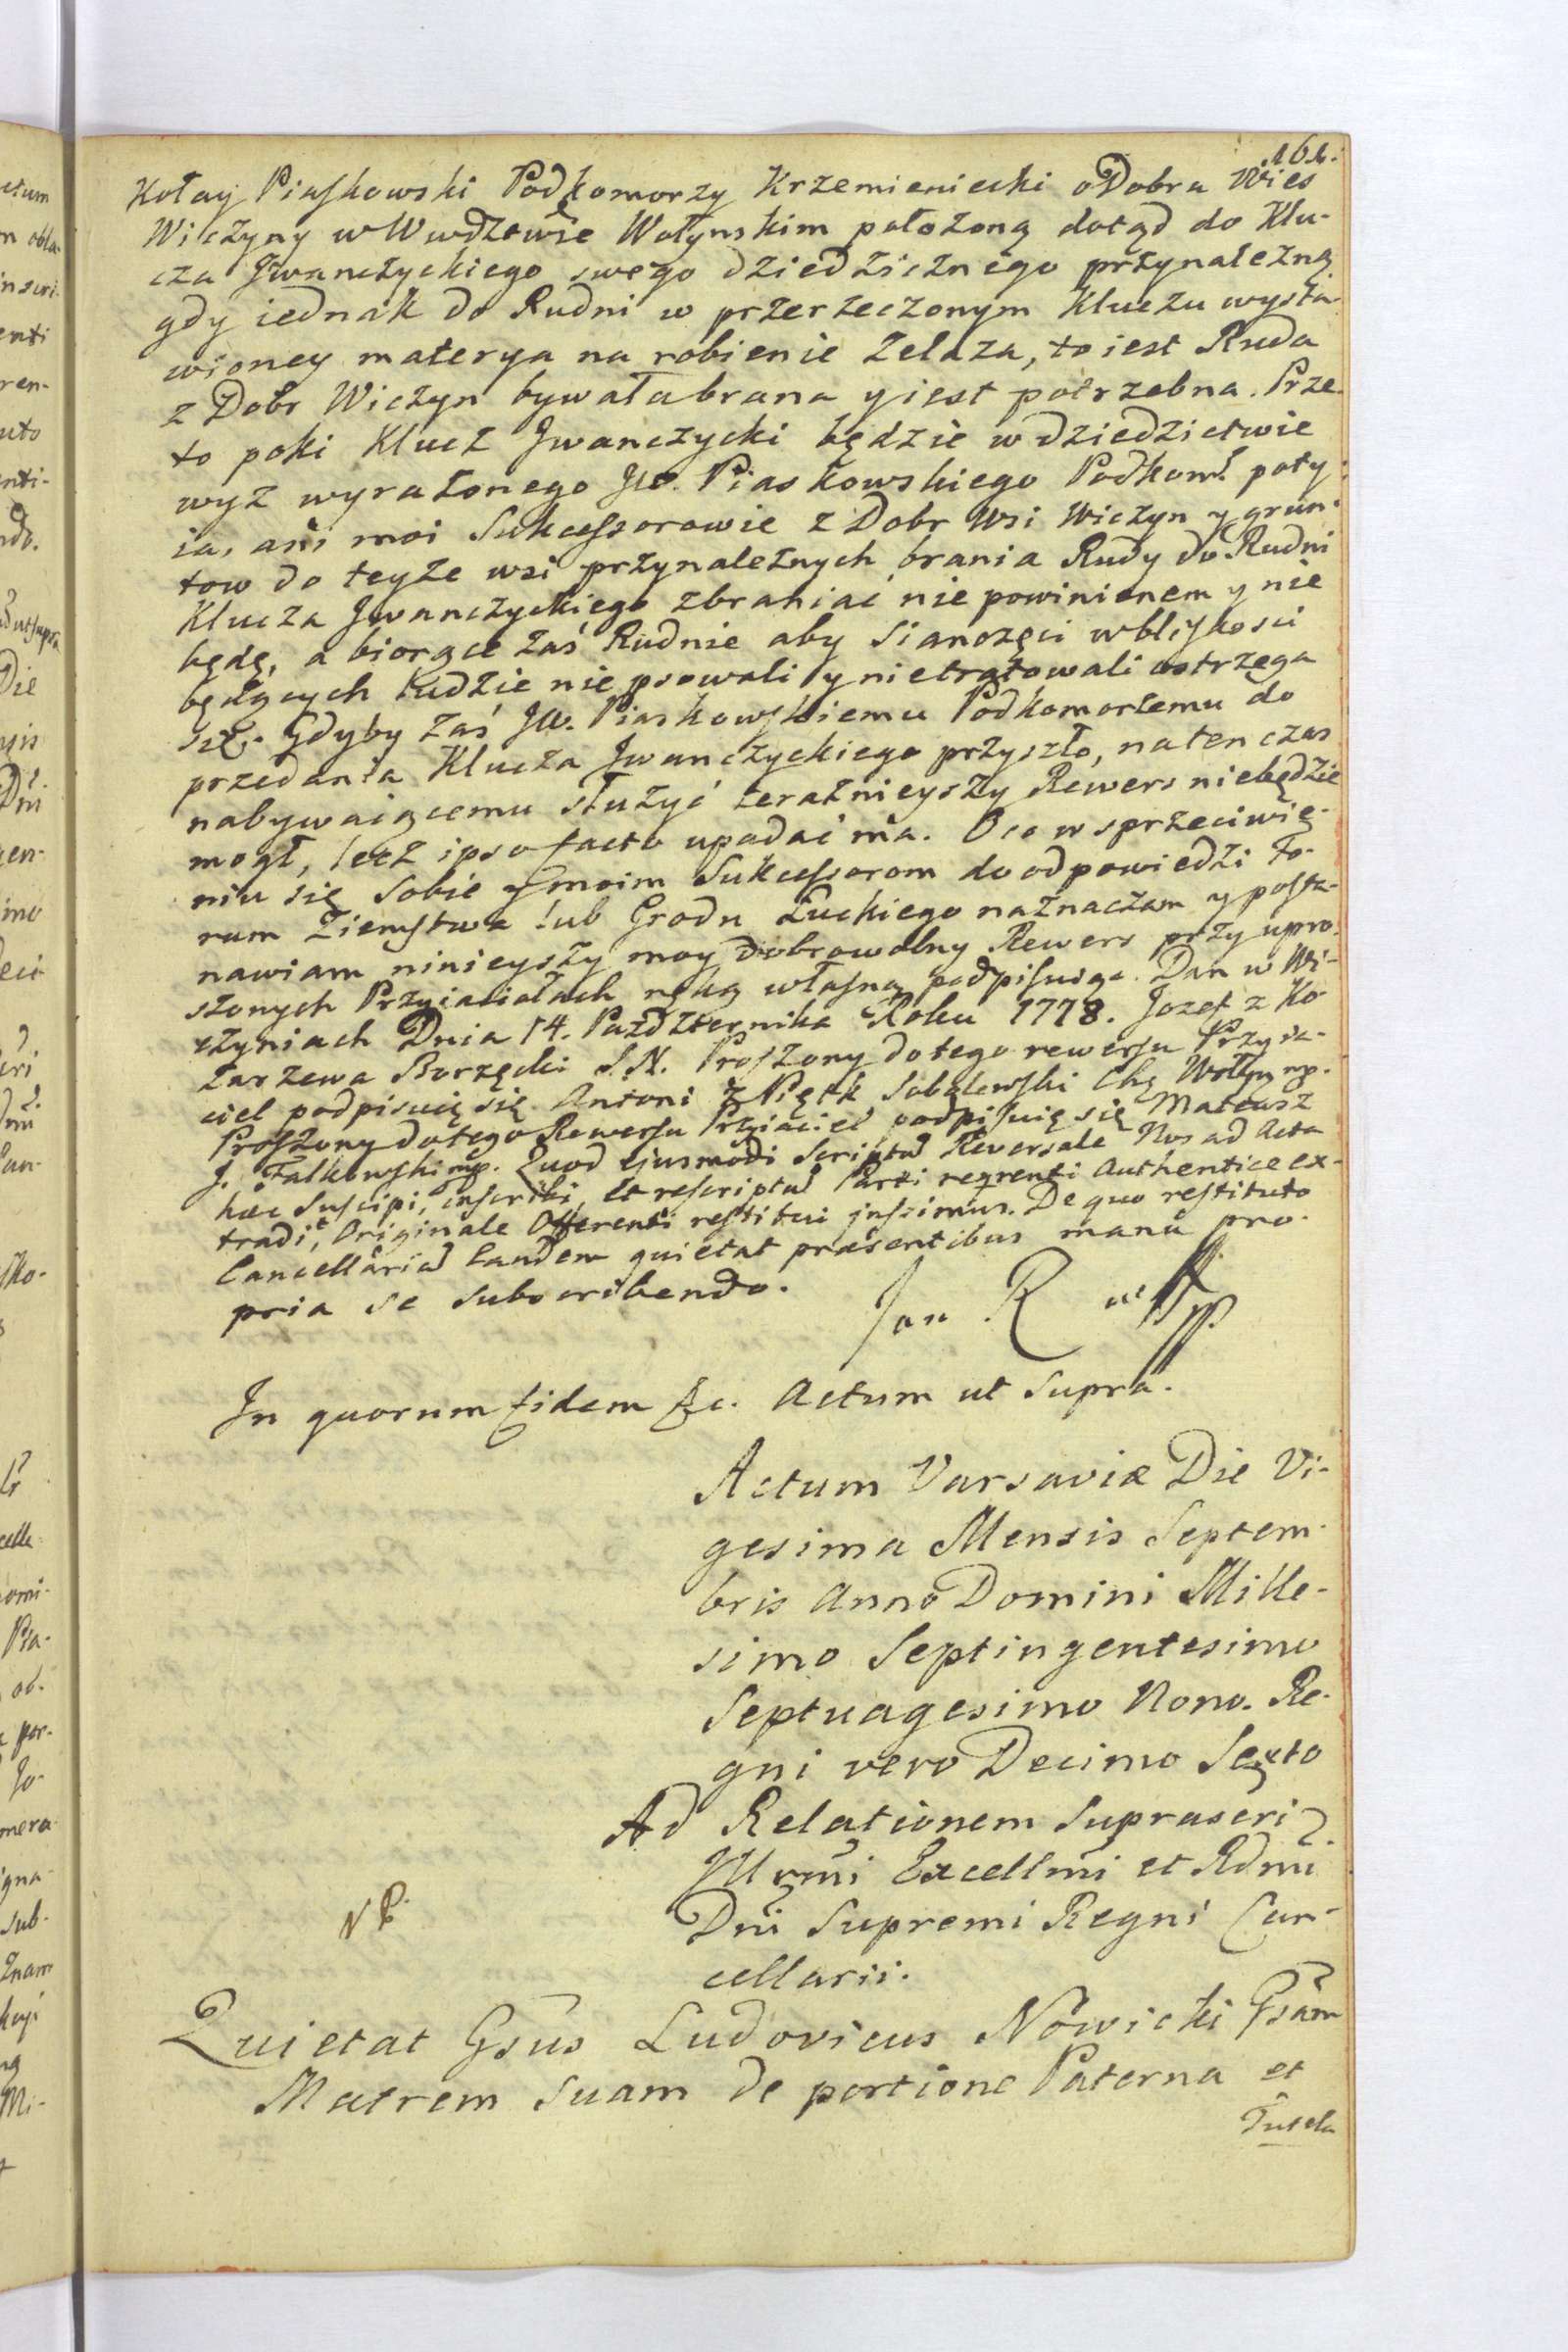 161.
Kołay Piaskowski Podkomorzy Krzemieniecki o Dobra Wies
Wiczyny w Wwdztwie Wołynskim położoną dotąd do Klu-
cza Jwanczyckiego swego dziedzicznego przynależną
gdy iednak do Rudni w przerzeczonym Kluczu wysta-
wioney materya na robienie Zelaza, to iest Ruda
z Dobr Wiczyn bywała brana y iest potrzebna. Prze-
to poki Klucz Jwanczycki będzie w dziedzictwie
wyz wyrażonego JW. Piaskowskiego Podkom. poty
ia, ani moi Sukcessorowie z Dobr Wsi Wiczyn y grun-
tow do teyże wsi przynależnych brania Rudy do Rudni
Klucza Jwanczyckiego zbraniać nie powinienem y nie
będę, a biorące zaś Rudnie aby Sianozęci w bliskości
będących Ludzie nie psowali y nietratowali ostrzega
się. Gdyby zaś JW. Piaskowskiemu Podkomorzemu do
przedania Klucza Jwanczyckiego przyszło, natenczas
nabywaiącemu służyć teraznieyszy Rewers niebędzie
mogł, lecz ipso facto upadać ma. O co w sprzeciwie-
niu się Sobie y moim Sukcessorom do odpowiedzi Fo-
rum Ziemstwa lub Grodu Łuckiego naznaczam y posta-
nawiam ninieyszy moy dobrowolny Rewers przy upro-
szonych Przyiaciołach ręką własną podpisuiąc. Dan w Wi-
czyniach Dnia 14. Pazdziernika Roku 1778. Jozef z Ko-
zarzewa Borzęcki S.N. Proszony do tego rewersu Przyia-
ciel podpisuię się Antoni z Piętk Sobolewski Chą Wołyn mp.
Proszony do tego Rewersu Przyiaciel podpisuię się Mateusz
J. Falkowski mp. Quod ejusmodi Scriptu Reversale Nos ad Acta
hæc Suscipi, inscribi, et rescriptu Parti reqrenti Authentice ex-
tradi, Originale Offerenti restitui jussimus. De quo restituto
Cancellaria eandem quietat præsentibus manu pro-
pria se subscribendo.
Jan R
In quorum fidem &c. Actum ut Supra.
Actum Varsaviæ Die Vi-
gesima Mensis Septem-
bris Anno Domini Mille-
simo Septingentesimo
Septuagesimo Nono. Re-
gni vero Decimo Sexto
Ad Relationem Suprascri
Jll rmi Excellmi et Rdmi
Dni Supremi Regni Can-
cellarii.
NB
Quietat Gsus Ludovicus Nowicki Gsam
Matrem Suam de portione Paterna et
Tutela